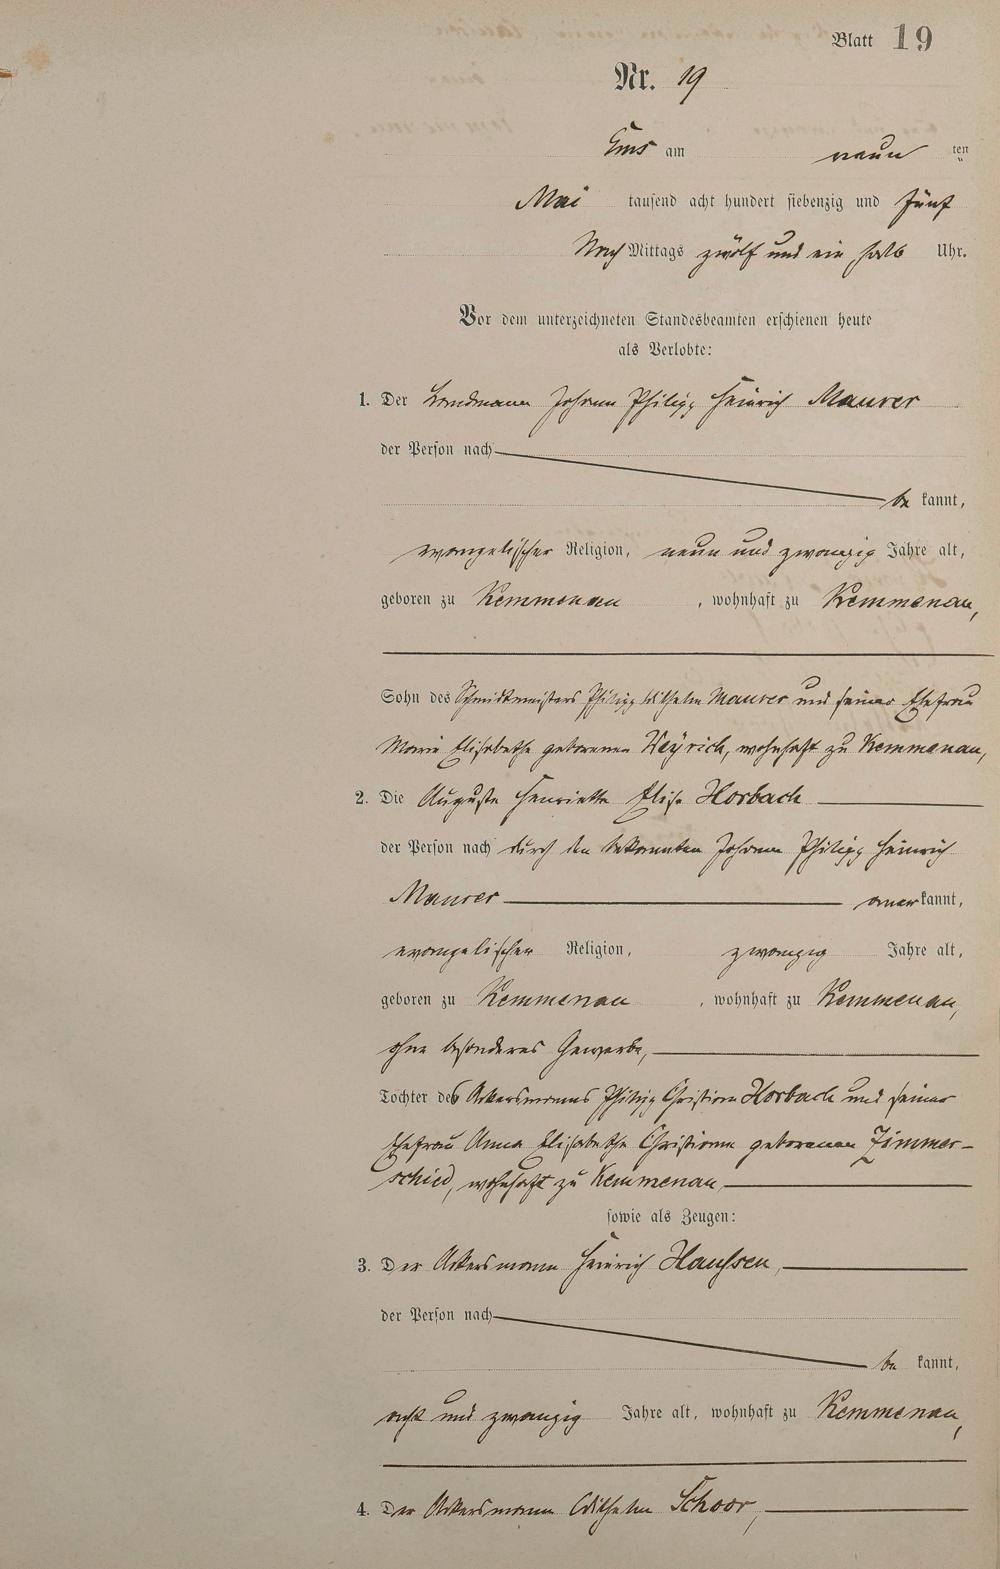 Blatt 19
Nr. 19
Ems am neun ten
Mai tausend acht hundert siebenzig und fünf
Nach Mittags zwölf und ein halb Uhr.
Vor dem unterzeichneten Standesbeamten erschienen heute
als Verlobte:
1. Der Landmann Johann Philipp Heinrich Maurer
der Person nach
be kannt,
evangelischer Religion, neun und zwanzig Jahre alt,
geboren zu Kemmenau, wohnhaft zu Kemmenau,
Sohn des Schmidtmeisters Philipp Wilhelm Maurer und seiner Ehefrau
Marie Elisabethe geborenen Weyrich, wohnhaft zu Kemmenau,
2. Die Auguste Henriette Elise Horbach
der Person nach durch den bekannten Johann Philipp Heinrich
Maurer anerkannt,
evangelischer Religion, zwanzig Jahre alt,
geboren zu Kemmenau, wohnhaft zu Kemmenau,
ohne besonderes Gewerbe,
Tochter des Ackersmanns Philipp Christian Horbach und seiner
Ehefrau Anna Elisabethe Christiane geborenen Zimmer-
schied, wohnhaft zu Kemmenau,
sowie als Zeugen:
3. Der Ackersmann Heinrich Haußen,
der Person nach
be kannt,
acht und zwanzig Jahre alt, wohnhaft zu Kemmenau,
4. Der Ackersmann Wilhelm Schoor,